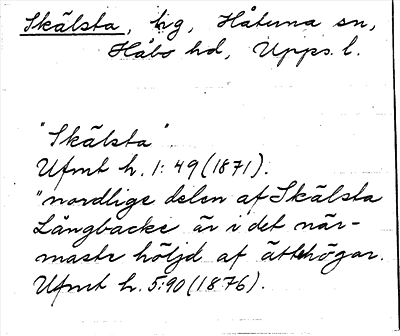 Skälsta, hg, Håtuna sn,
Håbo hd, Upps. l.
"Skälsta"
Ufmt h. 1: 49 (1871).
"nordlige delen af Skälsta
Långbacke är i det när-
maste höljd af ättehögar.
Ufmt h. 5:90 (1876).